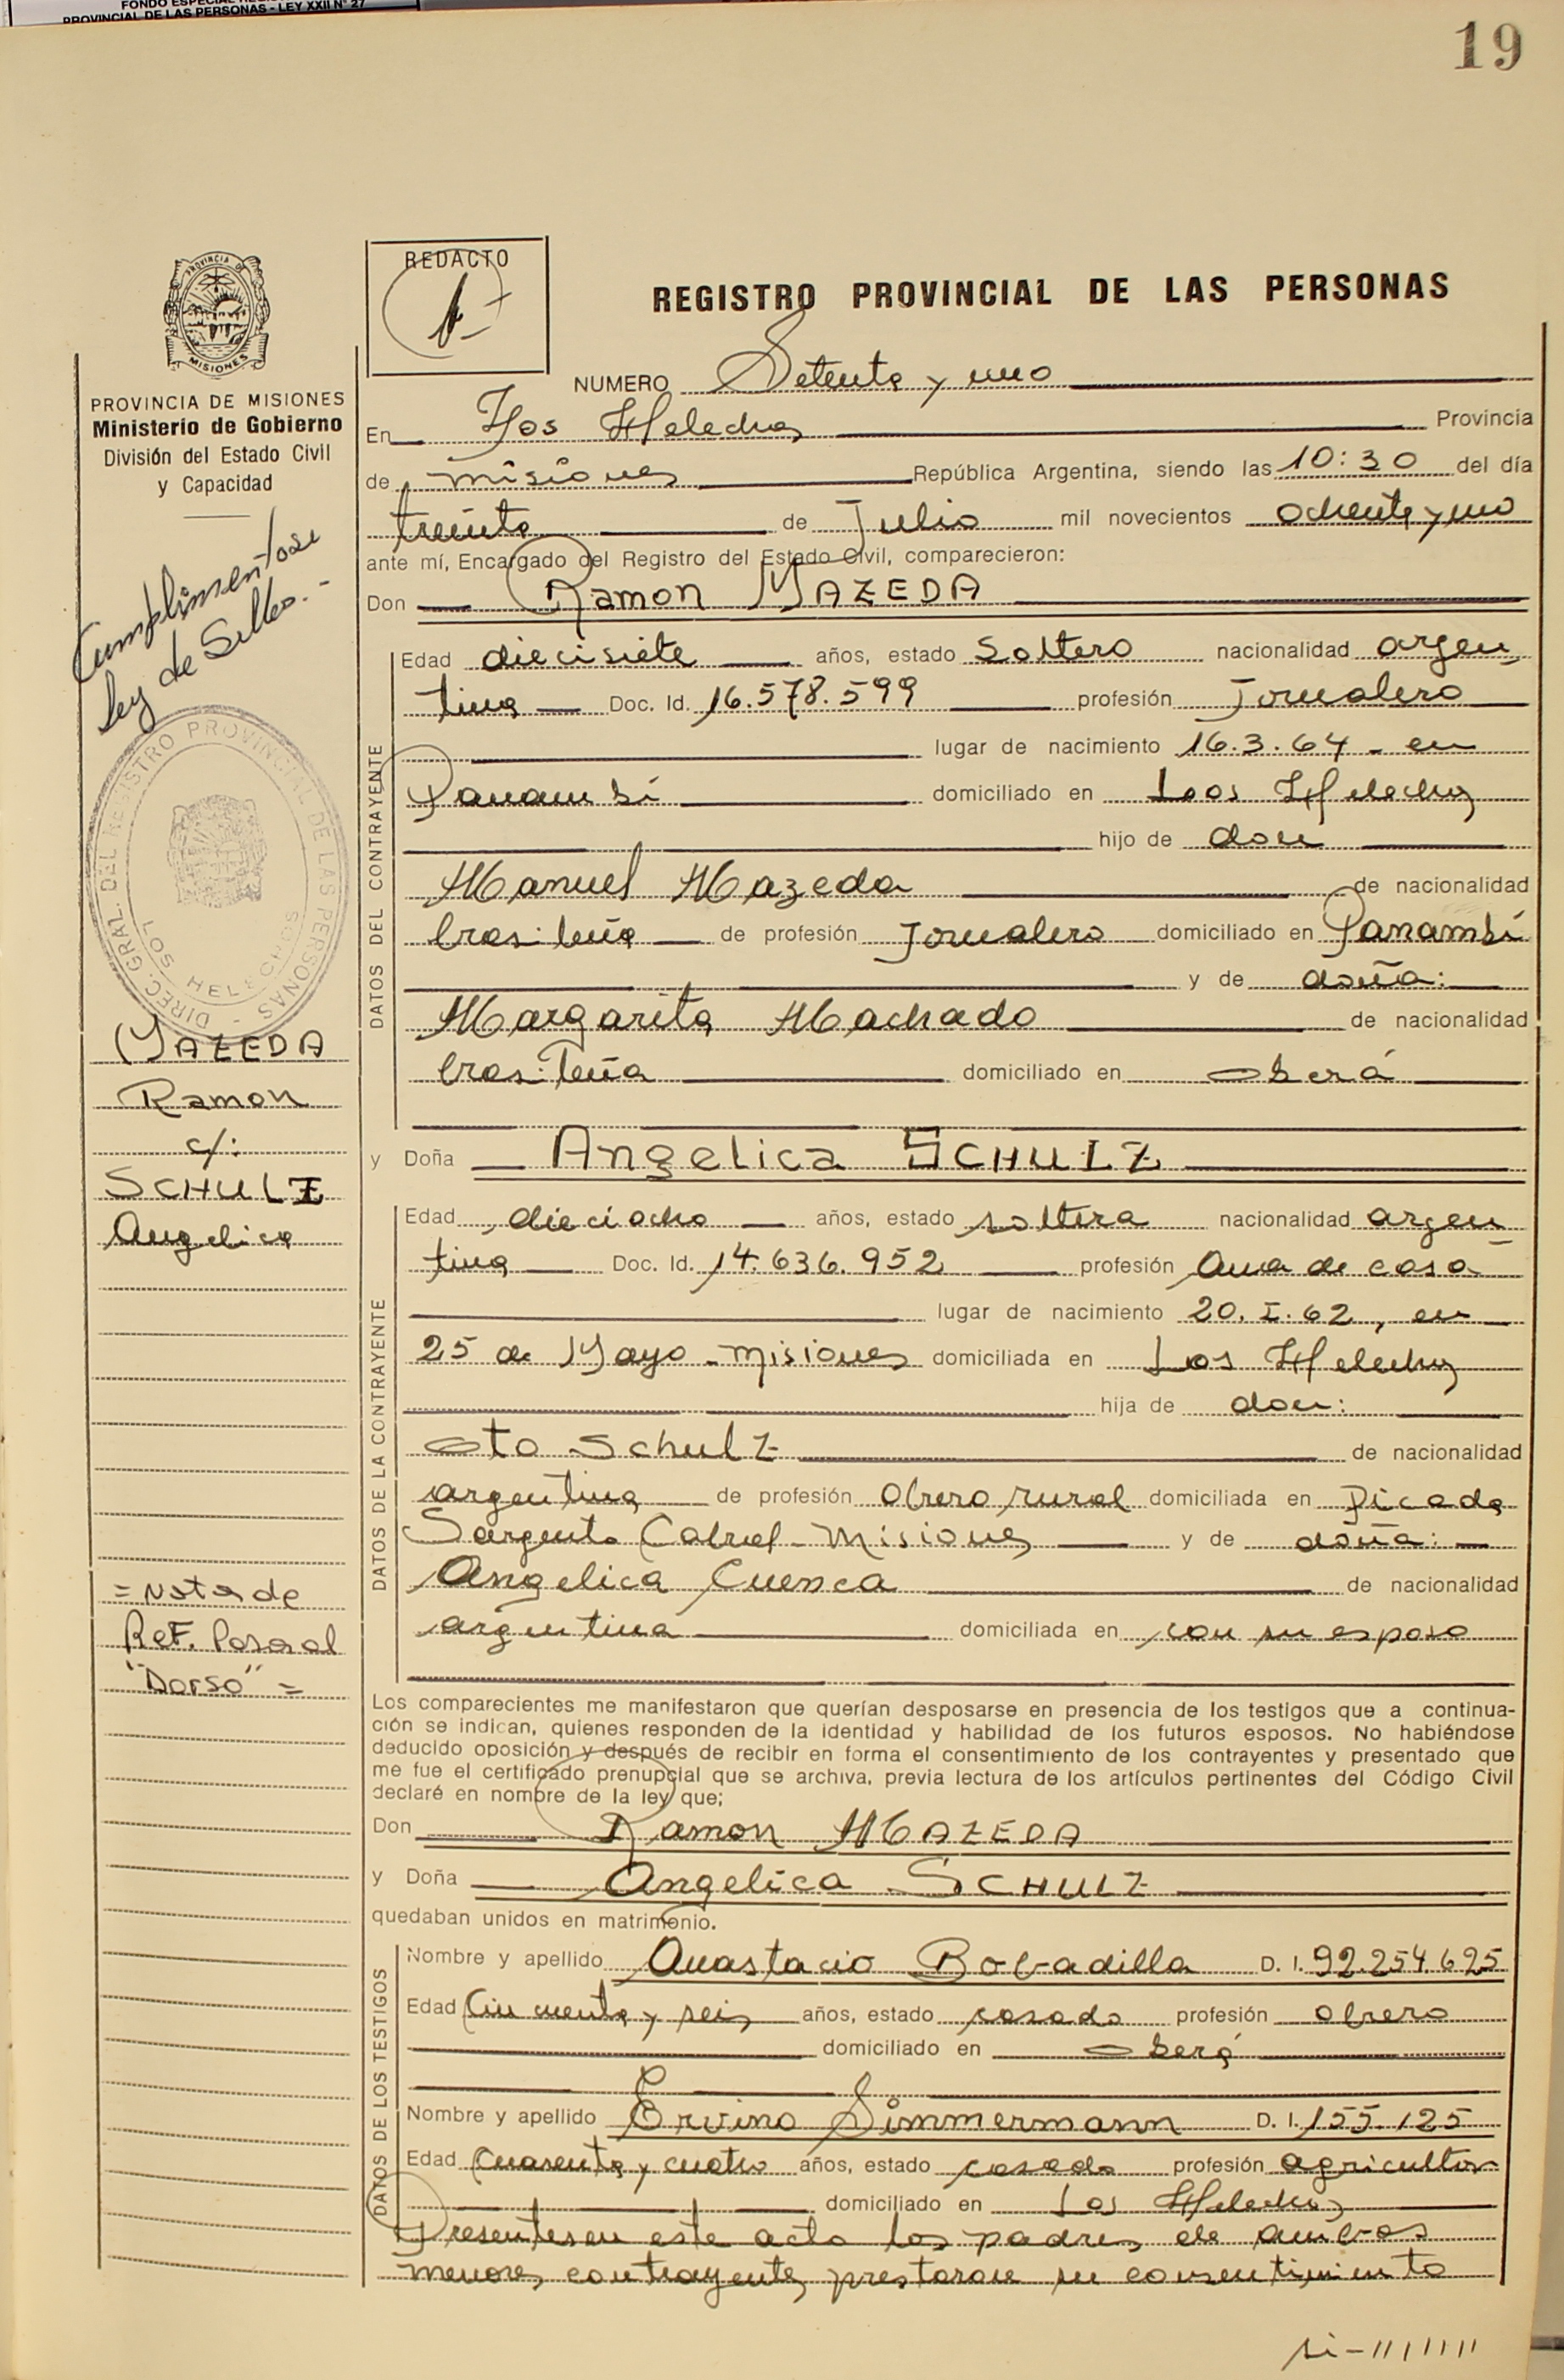 FONDO ESPECIAL
PROVINCIAL DE LAS PERSONAS - LEY XXII N° 27
19
REDACTO
REGISTRO PROVINCIAL DE LAS PERSONAS
MISIONES
PROVINCIA DE MISIONES
Ministerio de Gobierno
División del Estado Civil
y Capacidad
Cumplimentose
ley de Sellos.-
DIREC. GRAL. DEL REGISTRO PROVINCIAL DE LAS PERSONAS -
LOS HELECHOS
MAZEDA
Ramon
c/:
SCHULZ
Angelica
=Nota de
Ref. Pasa al
"Dorso"=
NUMERO Setenta y uno
En Los Helechos Provincia
de misiones República Argentina, siendo las 10:30 del día
treinta de Julio mil novecientos ochenta y uno
ante mí, Encargado del Registro del Estado Civil, comparecieron:
Don Ramon MAZEDA
DATOS DEL CONTRAYENTE
Edad diecisiete años, estado Soltero nacionalidad argen
tina Doc. Id. 16.578.599 profesión Jornalero
lugar de nacimiento 16.3.64 - en
Panambí domiciliado en Los Helechos
hijo de don
Manuel Mazeda de nacionalidad
brasileña de profesión Jornalero domiciliado en Panambí
y de doña:
Margarita Machado de nacionalidad
brasileña domiciliado en oberá
y Doña Angelica SCHULZ
DATOS DE LA CONTRAYENTE
Edad dieciocho años, estado soltera nacionalidad argen
tina Doc. Id. 14.636.952 profesión Ama de casa
lugar de nacimiento 20.I.62, en
25 de Mayo - misiones domiciliada en Los Helechos
hija de don:
oto Schulz de nacionalidad
argentina de profesión Obrero rural domiciliada en Picada
Sargento Cabral - Misiones y de doña:
Angelica Cuenca de nacionalidad
argentina domiciliada en con su esposo
Los comparecientes me manifestaron que querían desposarse en presencia de los testigos que a continua-
ción se indican, quienes responden de la identidad y habilidad de los futuros esposos. No habiéndose
deducido oposición y después de recibir en forma el consentimiento de los contrayentes y presentado que
me fue el certificado prenupcial que se archiva, previa lectura de los artículos pertinentes del Código Civil
declaré en nombre de la ley que;
Don Ramon MAZEDA
y Doña Angelica SCHULZ
quedaban unidos en matrimonio.
DATOS DE LOS TESTIGOS
Nombre y apellido Anastacio Bobadilla D. I. 92.254.625
Edad Cincuenta y seis años, estado casado profesión obrero
domiciliado en oberá
Nombre y apellido Ervino Simmermann D. I. 155.125
Edad Cuarenta y cuatro años, estado casado profesión agricultor
domiciliado en Los Helechos
Presentes en este acto los padres de ambos
menores contrayentes prestaron su consentimiento